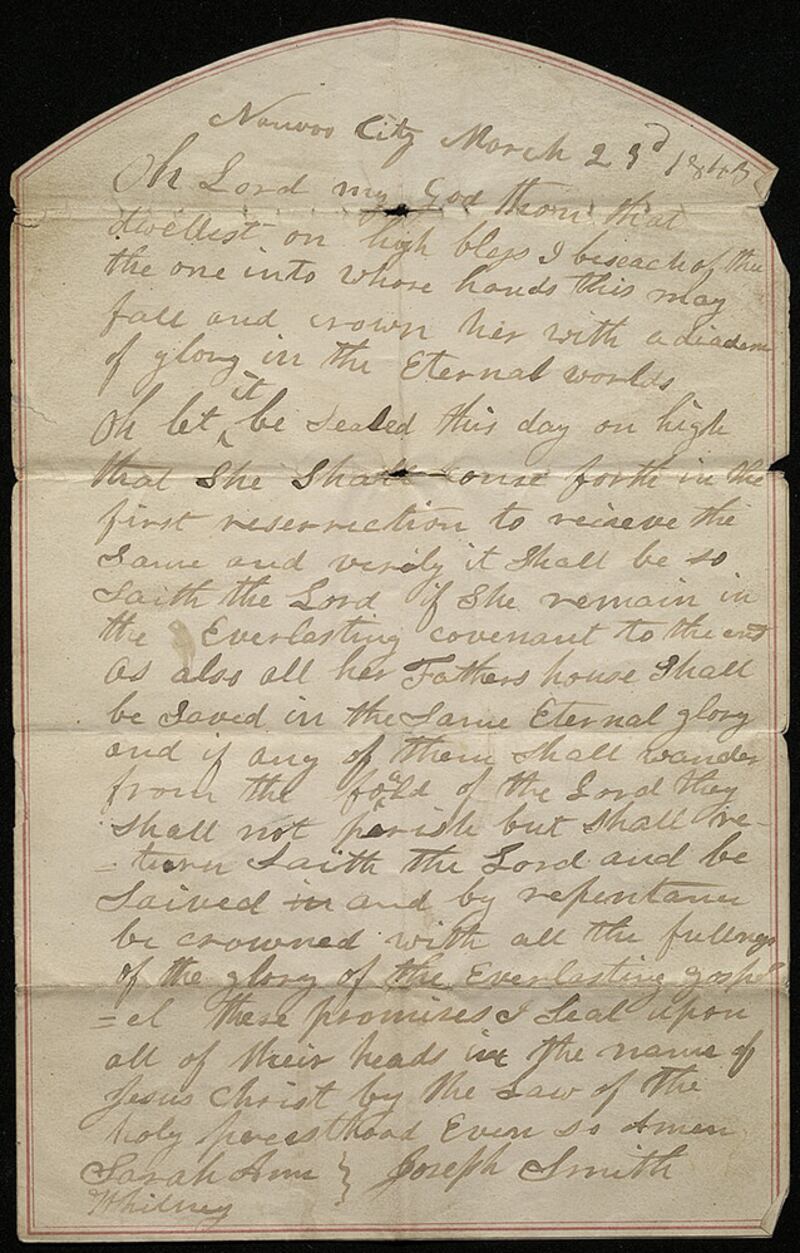 Nauvoo City March 23d 1843
Oh Lord my God thou that
dwellest on high bless I beseach of the
the one into whose hands this may
fall and crown her with a diadem
of glory in the Eternal worlds
Oh let it be Sealed this day on high
that She Shall come forth in the
first reserrection to recieve the
Same and verily it Shall be so
Saith the Lord if She remain in
the Everlasting covenant to the end
as also all her Fathers house Shall
be Saved in the Same Eternal glory
and if any of them shall wander
from the foald of the Lord they
shall not perish but shall re-
=turn Saith the Lord and be
Saived in and by repentance
be crowned with all the fullness
of the glory of the Everlasting gosp
=el these promises I Seal upon
all of their heads in the name of
Jesus Christ by the Law of the
holy preesthood Even so Amen
Sarah Ann } Joseph Smith
Whitney